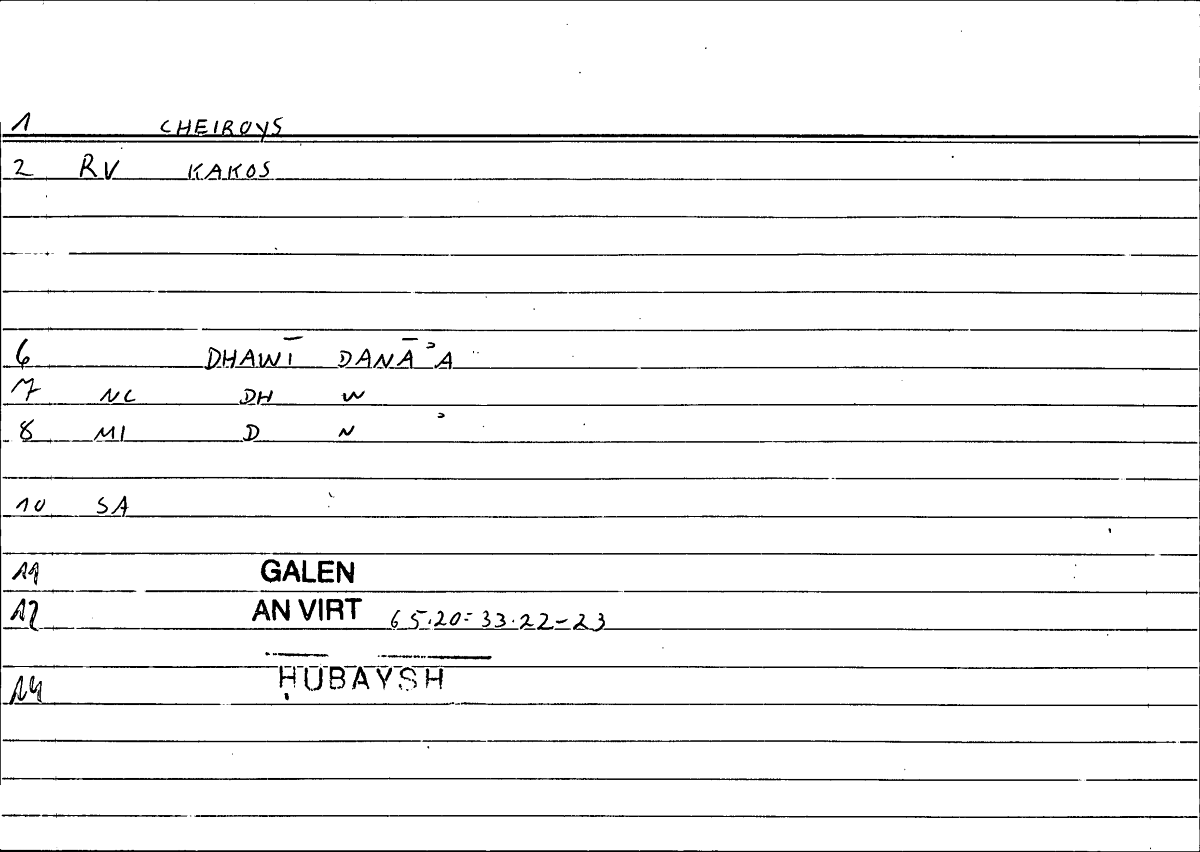 1 CHEIROYS
2 RV KAKOS
6 DHAWĪ DANĀʾA
7 NC DH W
8 MI D N ʾ
10 SA
11 GALEN
12 AN VIRT 65.20=33.22-23
14 ḤUBAYSH